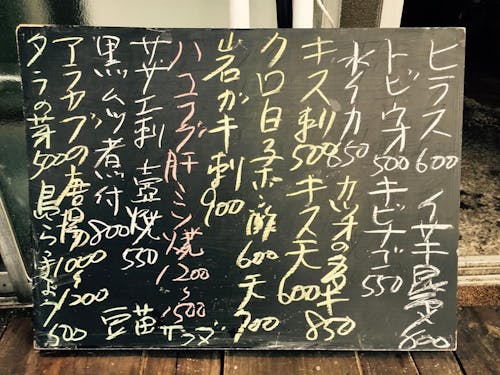 ヒラス 600 イサキ
トビウオ 500 キビナゴ 550
水イカ 850 カツオのタタキ 850
キス刺 500 キス天 600
クロ白子ポン酢 600 天 700
岩ガキ刺 900
肝ミソ焼 1200〜1500
サザエ刺 壺焼 550
黒ムツ煮付 800 豆苗サラダ
アラカブの唐揚 1000〜1200
タラの芽 500 島らっきょう 500